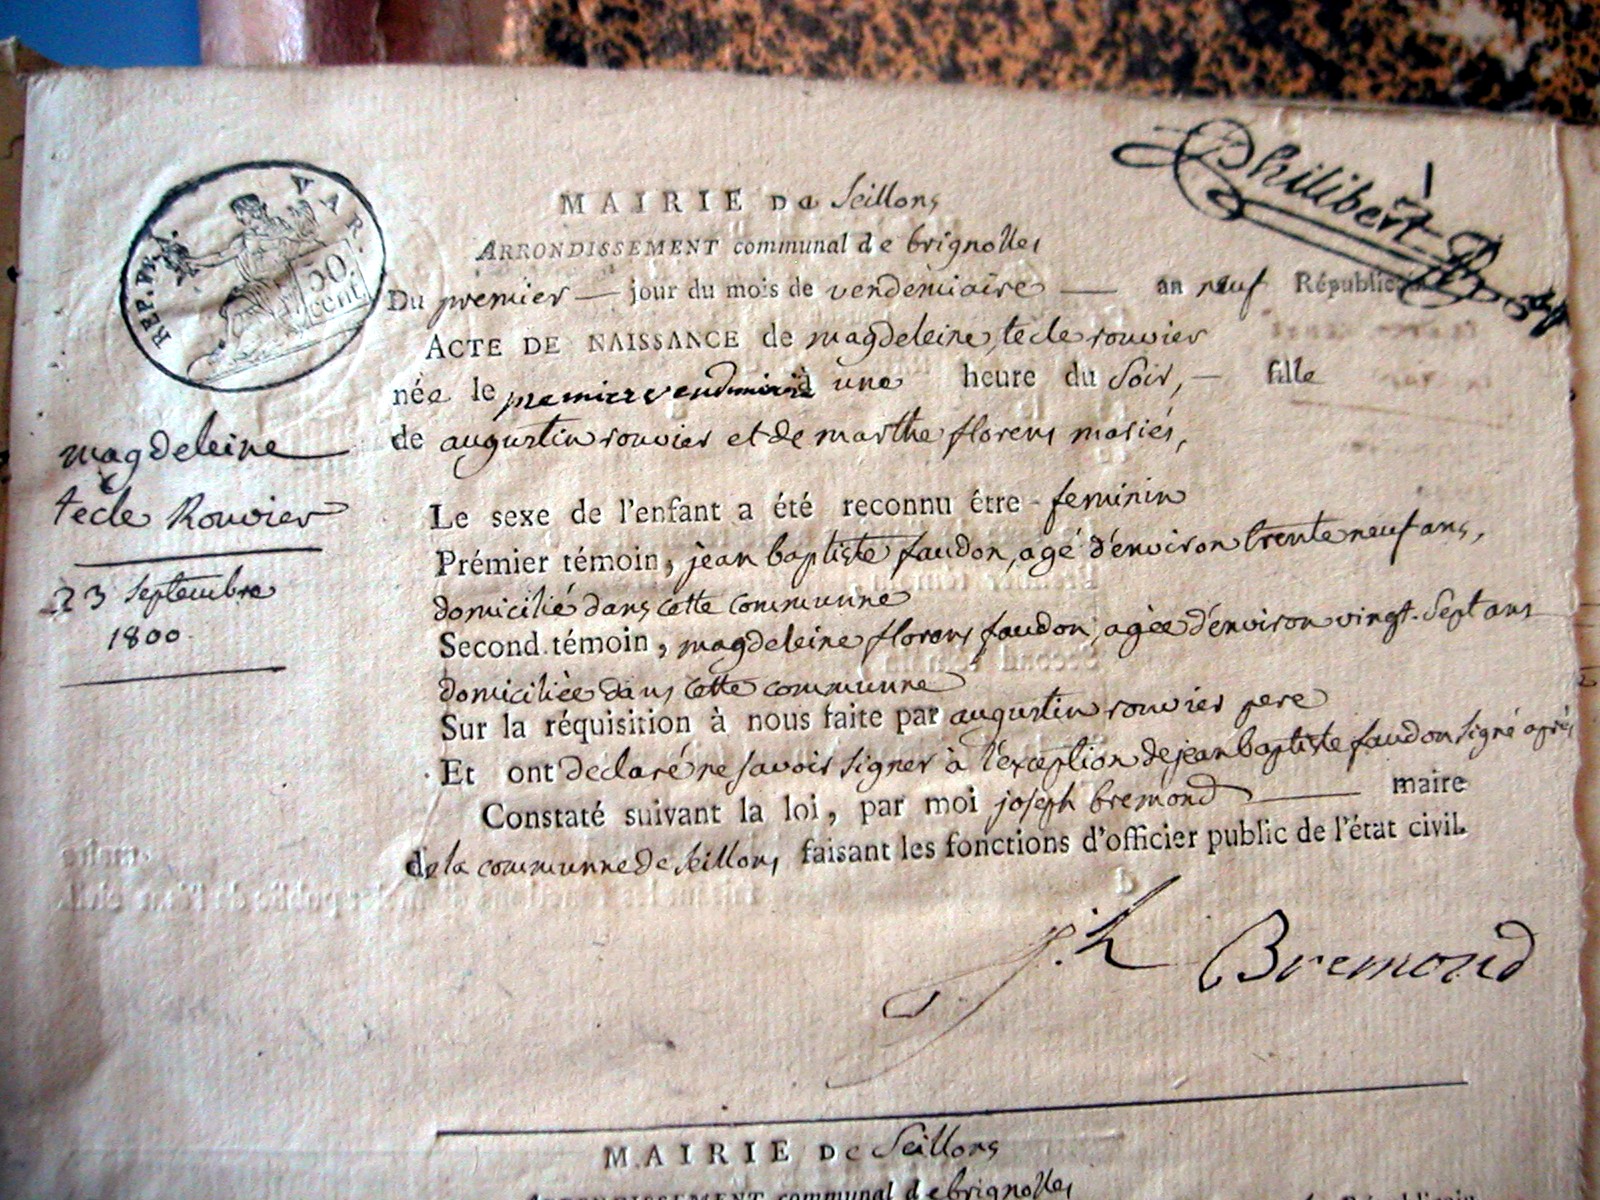 Philibert
REP. FRA. VAR.
50
cent.
MAIRIE De Seillons
ARRONDISSEMENT communal de brignolles
Du premier — jour du mois de vendémiaire — an neuf Républic
ACTE DE NAISSANCE de magdeleine, tecle rouvier
née le premier vendemiaire à une heure du Soir, — fille
de augustin rouvier et de marthe florens mariés,
magdeleine
tècle Rouvier
23 septembre
1800
Le sexe de l'enfant a été reconnu être - feminin
Prémier témoin, jean baptiste faudon, agé d'énviron trente neuf ans,
domicilié dans cette communne
Second témoin, magdeleine florens faudon, agée d'énviron vingt-Sept ans
domiciliée dans cette communne
Sur la réquisition à nous faite par augustin rouvier pere
Et ont declaré ne savoir signer à l'éxception de jean baptiste faudon signé après
Constaté suivant la loi, par moi joseph bremond — maire
de la communne de Seillons faisant les fonctions d'officier public de l'état civil.
j.h Bremond
MAIRIE De Seillons
ARRONDISSEMENT communal de brignolles